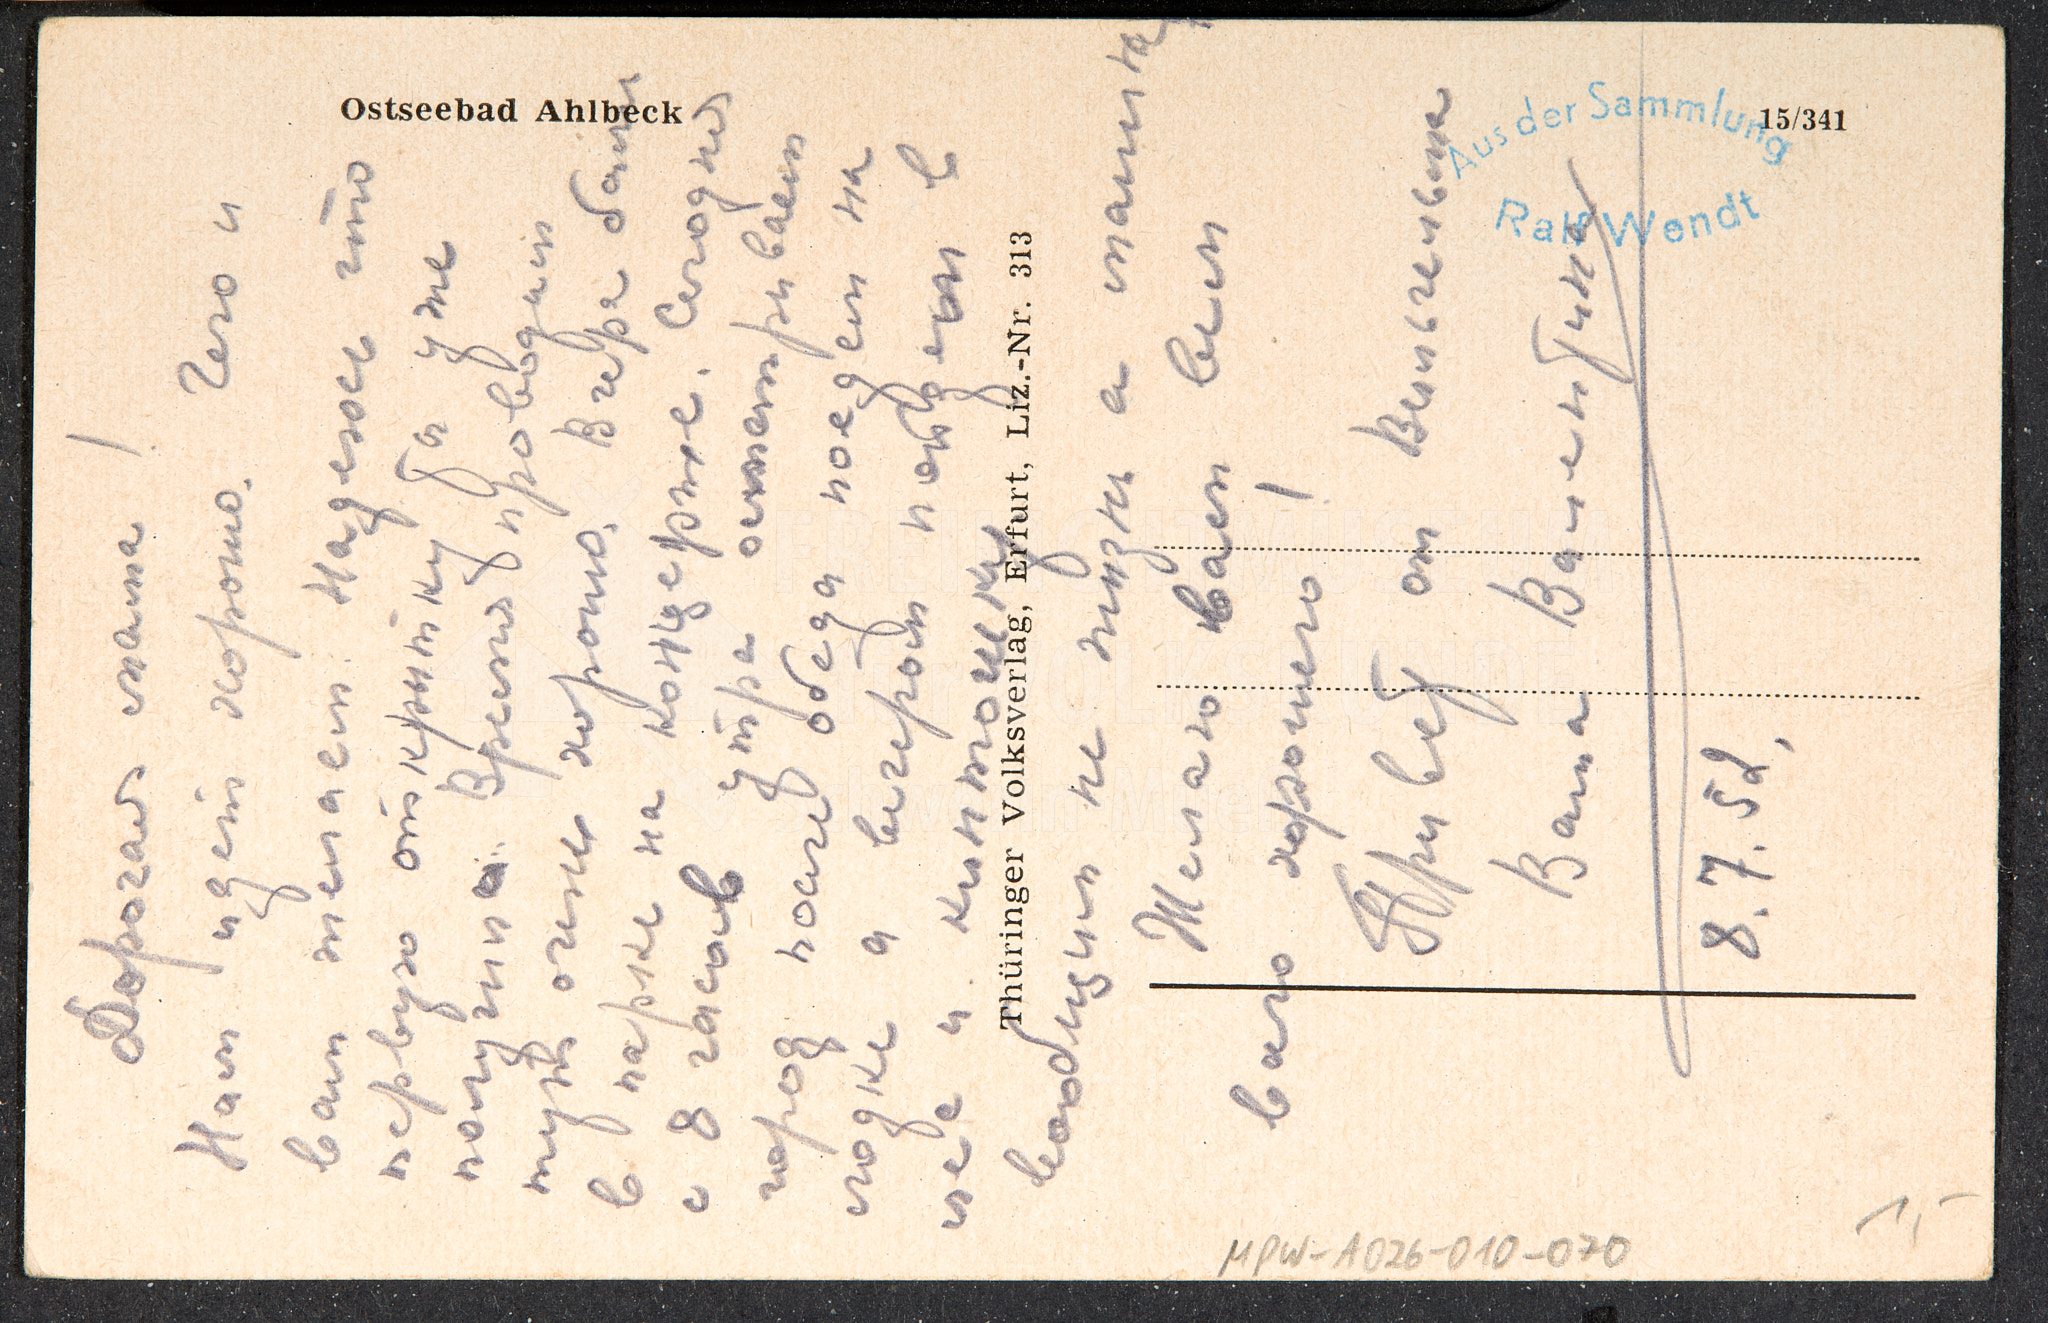 Ostseebad Ahlbeck
15/341
Aus der Sammlung
Ralf Wendt
Thüringer Volksverlag, Erfurt, Liz.-Nr. 313
Дорогая мама!
Нам идет хорошо. Чего и
вам желаем. Надеюсь што
первую открытку вы уже
получили. Время проводим
тут очень хорошо. Вчера были
в парке на концерте. Сегодня
с 8 часов утра осматриваем
город после обеда поедем на
лодке а вечером пойдем в
и. кинто
не а мамка
Желаю вам всем
всего хорошего!
Привет от
Ваша Валентина
8.7.52,
MPW-A026-010-070
1,-